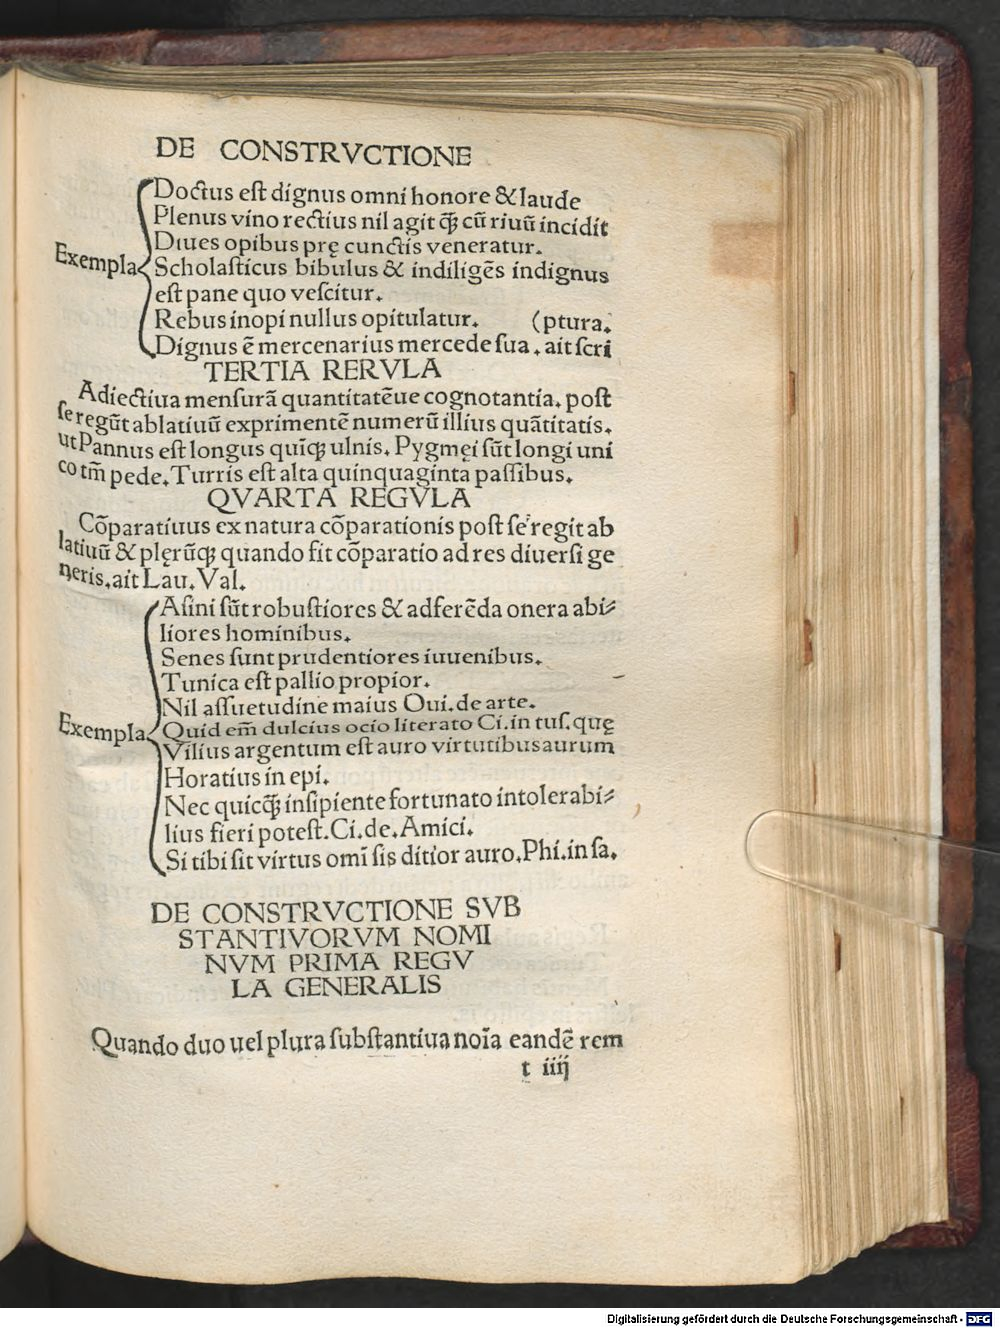 DE CONSTRVCTIONE
Doctus eſt dignus omni honore & laude
Plenus vino rectius nil agit ꝙ̃ cũ riuũ incidit
Diues opibus prę cunctis veneratur.
Exempla Scholaſticus bibulus & indiligẽs indignus
eſt pane quo veſcitur.
Rebus inopi nullus opitulatur. (ptura.
Dignus ẽ mercenarius mercede ſua. ait ſcri
TERTIA RERVLA
Adiectiua menſurã quantitatẽue cognotantia. poſt
ſe regũt ablatiuũ exprimentẽ numerũ illius quãtitatis.
ut Pannus eſt longus quĩqꝫ ulnis. Pygmęi ſũt longi uni
co tm̃ pede. Turris eſt alta quinquaginta paſſibus.
QVARTA REGVLA
Cõparatiuus ex natura cõparationis poſt ſe regit ab
latiuũ & plęrũqꝫ quando fit cõparatio ad res diuerſi ge
neris. ait Lau. Val.
Aſini ſũt robuſtiores & ad ferẽda onera abi⸗
liores hominibus.
Senes ſunt prudentiores iuuenibus.
Tunica eſt pallio propior.
Nil aſſuetudine maius Oui. de arte.
Exempla Quid em̃ dulcius ocio literato Ci. in tuſ. quę
Vilius argentum eſt auro virtutibus aurum
Horatius in epi.
Nec quicꝙ̃ inſipiente fortunato intolerabi⸗
lius fieri poteſt. Ci. de. Amici.
Si tibi ſit virtus omĩ ſis ditior auro. Phi. in ſa.
DE CONSTRVCTIONE SVB
STANTIVORVM NOMI
NVM PRIMA REGV
LA GENERALIS
Quando duo uel plura ſubſtantiua noĩa eandẽ rem
t iiij
Digitalisierung gefördert durch die Deutsche Forschungsgemeinschaft - DFG